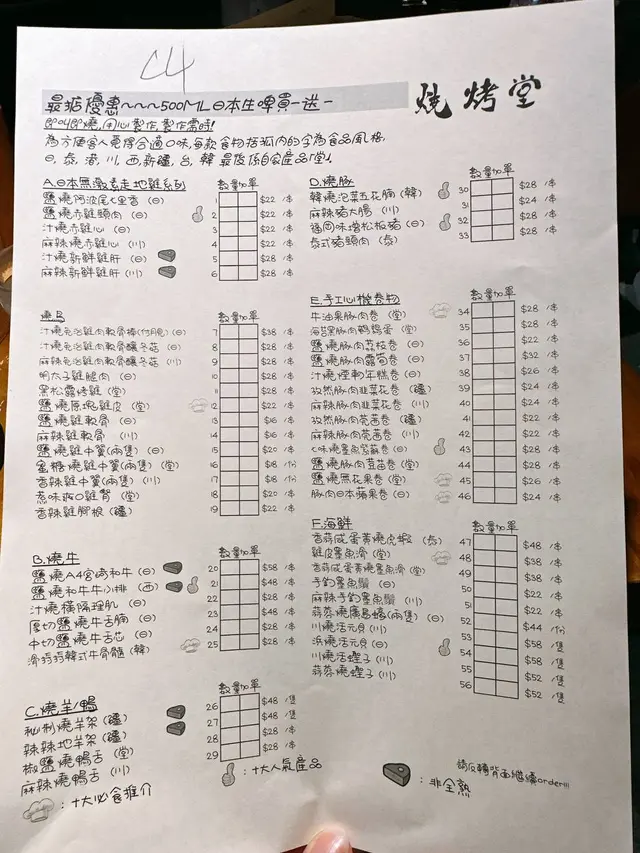 C4
最抵優惠~~~500ML日本生啤買一送一
燒烤堂
即叫即燒,用心製作,製作需時!
為方便客人覺得合適口味,每款食物括弧內的字為食品風格
日, 泰, 港, 川, 西, 新疆, 台, 韓 最後係自家產品「堂」.
A.日本無激素走地雞系列 數量加單
鹽燒阿波尾七里香 (日) 1 $22 /串
鹽燒赤雞頸肉 (日) 2 $22 /串
汁燒赤雞心 (日) 3 $22 /串
麻辣燒赤雞心 (川) 4 $22 /串
汁燒新鮮雞肝 (日) 5 $28 /串
麻辣新鮮雞肝 (川) 6 $28 /串
燒鳥 數量加單
汁燒免治雞肉軟骨棒(付蛋) (日) 7 $38 /串
汁燒免治雞肉軟骨釀冬菇 (日) 8 $28 /串
麻辣免治雞肉軟骨釀冬菇 (川) 9 $28 /串
明太子雞腿肉 (日) 10 $28 /串
黑松露燒雞 (堂) 11 $28 /串
鹽燒原塊雞皮 (堂) 12 $22 /串
鹽燒雞軟骨 (日) 13 $16 /串
麻辣雞軟骨 (川) 14 $16 /串
鹽燒雞中翼(兩隻) (日) 15 $20 /串
蜜糖燒雞中翼(兩隻) (堂) 16 $18 /份
香辣雞中翼(兩隻) (川) 17 $18 /份
惹味爽口雞腎 (堂) 18 $20 /串
香辣雞腳根 (疆) 19 $22 /串
B.燒牛 數量加單
鹽燒A4宮崎和牛 (日) 20 $58 /串
鹽燒和牛牛小排 (西) 21 $48 /串
汁燒橫隔裡肌 (日) 22 $28 /串
厚切鹽燒牛舌腩 (日) 23 $28 /串
中切鹽燒牛舌芯 (日) 24 $28 /串
滑捋捋韓式牛骨髓 (韓) 25 $28 /串
C.燒羊/鴨 數量加單
秘制燒羊架 (疆) 26 $48 /隻
辣辣地羊架 (疆) 27 $48 /隻
椒鹽燒鴨舌 (堂) 28 $28 /串
麻辣燒鴨舌 (川) 29 $28 /串
: 十大必食推介
D.燒豚 數量加單
韓燒泡菜五花腩 (韓) 30 $28 /串
麻辣豬大腸 (川) 31 $24 /串
福岡味增松板豬 (日) 32 $28 /串
泰式豬頸肉 (泰) 33 $28 /串
E.手工心機卷物 數量加單
牛油果豚肉卷 (堂) 34 $28 /串
海苔黑豚肉鵪鶉蛋 (堂) 35 $28 /串
鹽燒豚肉荔枝卷 (日) 36 $22 /串
鹽燒豚肉露筍卷 (日) 37 $32 /串
汁燒煙肉年糕卷 (日) 38 $26 /串
孜然豚肉韮菜花卷 (疆) 39 $24 /串
麻辣豚肉韮菜花卷 (川) 40 $24 /串
孜然豚肉芫茜卷 (疆) 41 $22 /串
麻辣豚肉芫茜卷 (川) 42 $22 /串
七味燒墨魚紫蘇卷 (日) 43 $28 /串
鹽燒豚肉豆苗卷 (堂) 44 $28 /串
鹽燒無花果卷 (堂) 45 $26 /串
豚肉日本蘋果卷 (日) 46 $24 /串
F.海鮮 數量加單
香蒜咸蛋黃燒虎蝦 (泰) 47 $48 /串
雞皮墨魚滑 (堂) 48 $38 /串
香蒜咸蛋黃燒墨魚滑 (堂) 49 $38 /串
手釣墨魚鬚 (日) 50 $22 /串
麻辣手釣墨魚鬚 (川) 51 $22 /串
蒜蓉燒廣島蠔(兩隻) (日) 52 $44 /份
川燒活元貝 (川) 53 $58 /隻
浜燒活元貝 (日) 54 $58 /隻
川燒活蟶子 (川) 55 $52 /隻
蒜蓉燒蟶子 (川) 56 $52 /隻
: 十大人氣產品
: 非全熟
請反轉背面繼續order!!!